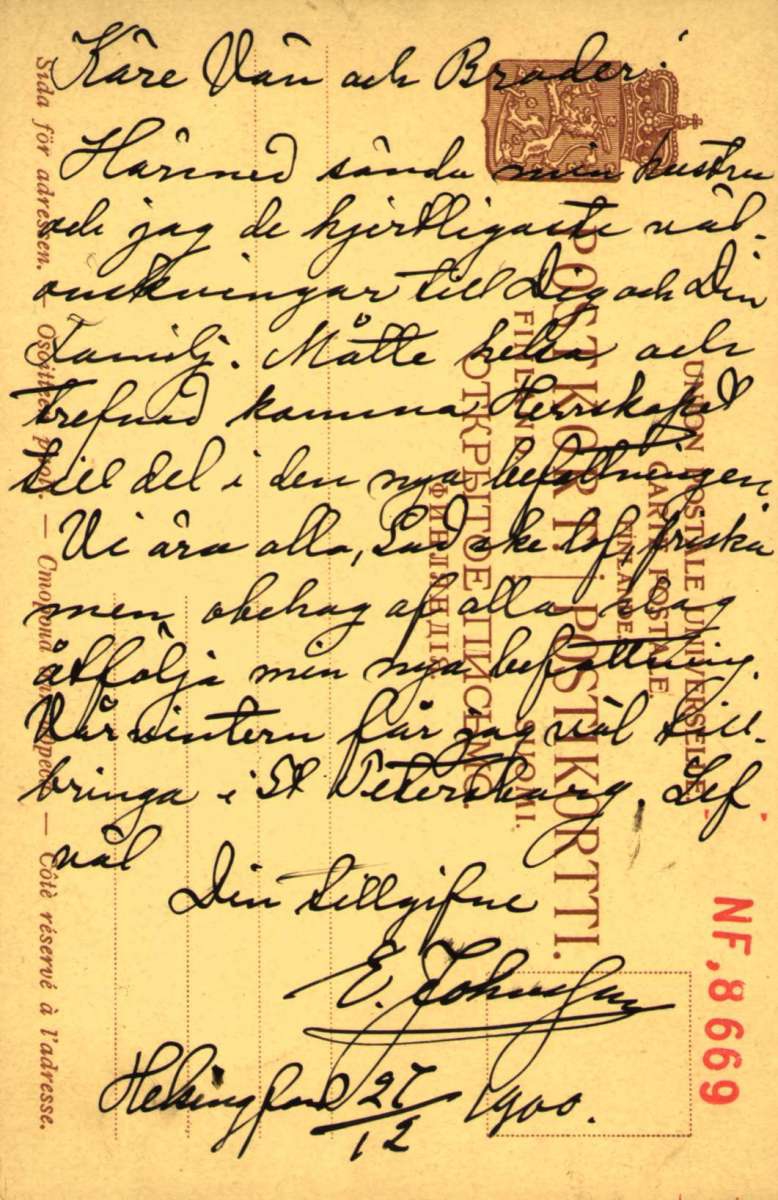 Käre Vän och Broder!
Härmed sända min hustru
och jag de hjertligaste väl-
önskningar till Dig och Din
Familj. Måtte helsa och
trefnad komma Herrskapet
till del i den nya befattningen.
Vi äro alla, Gud ske lof, friska
men obehag af alla slag
åtfölja min nya befattning.
Vårvintern får jag väl till-
bringa i St Petersburg. Lef
väl
Din tillgifne
E.
Helsingfors 27/12 1900.
UNION POSTALE UNIVERSELLE
CARTE POSTALE
FINLANDE
POSTKORT. POSTIKORTTI.
FINLAND. SUOMI.
ОТКРЫТОЕ ПИСЬМО.
ФИНЛЯНДІЯ
Sida för adressen. — Osoitteen puoli. — Сторона для адреса — Côté réservé à l'adresse.
NF, 8669